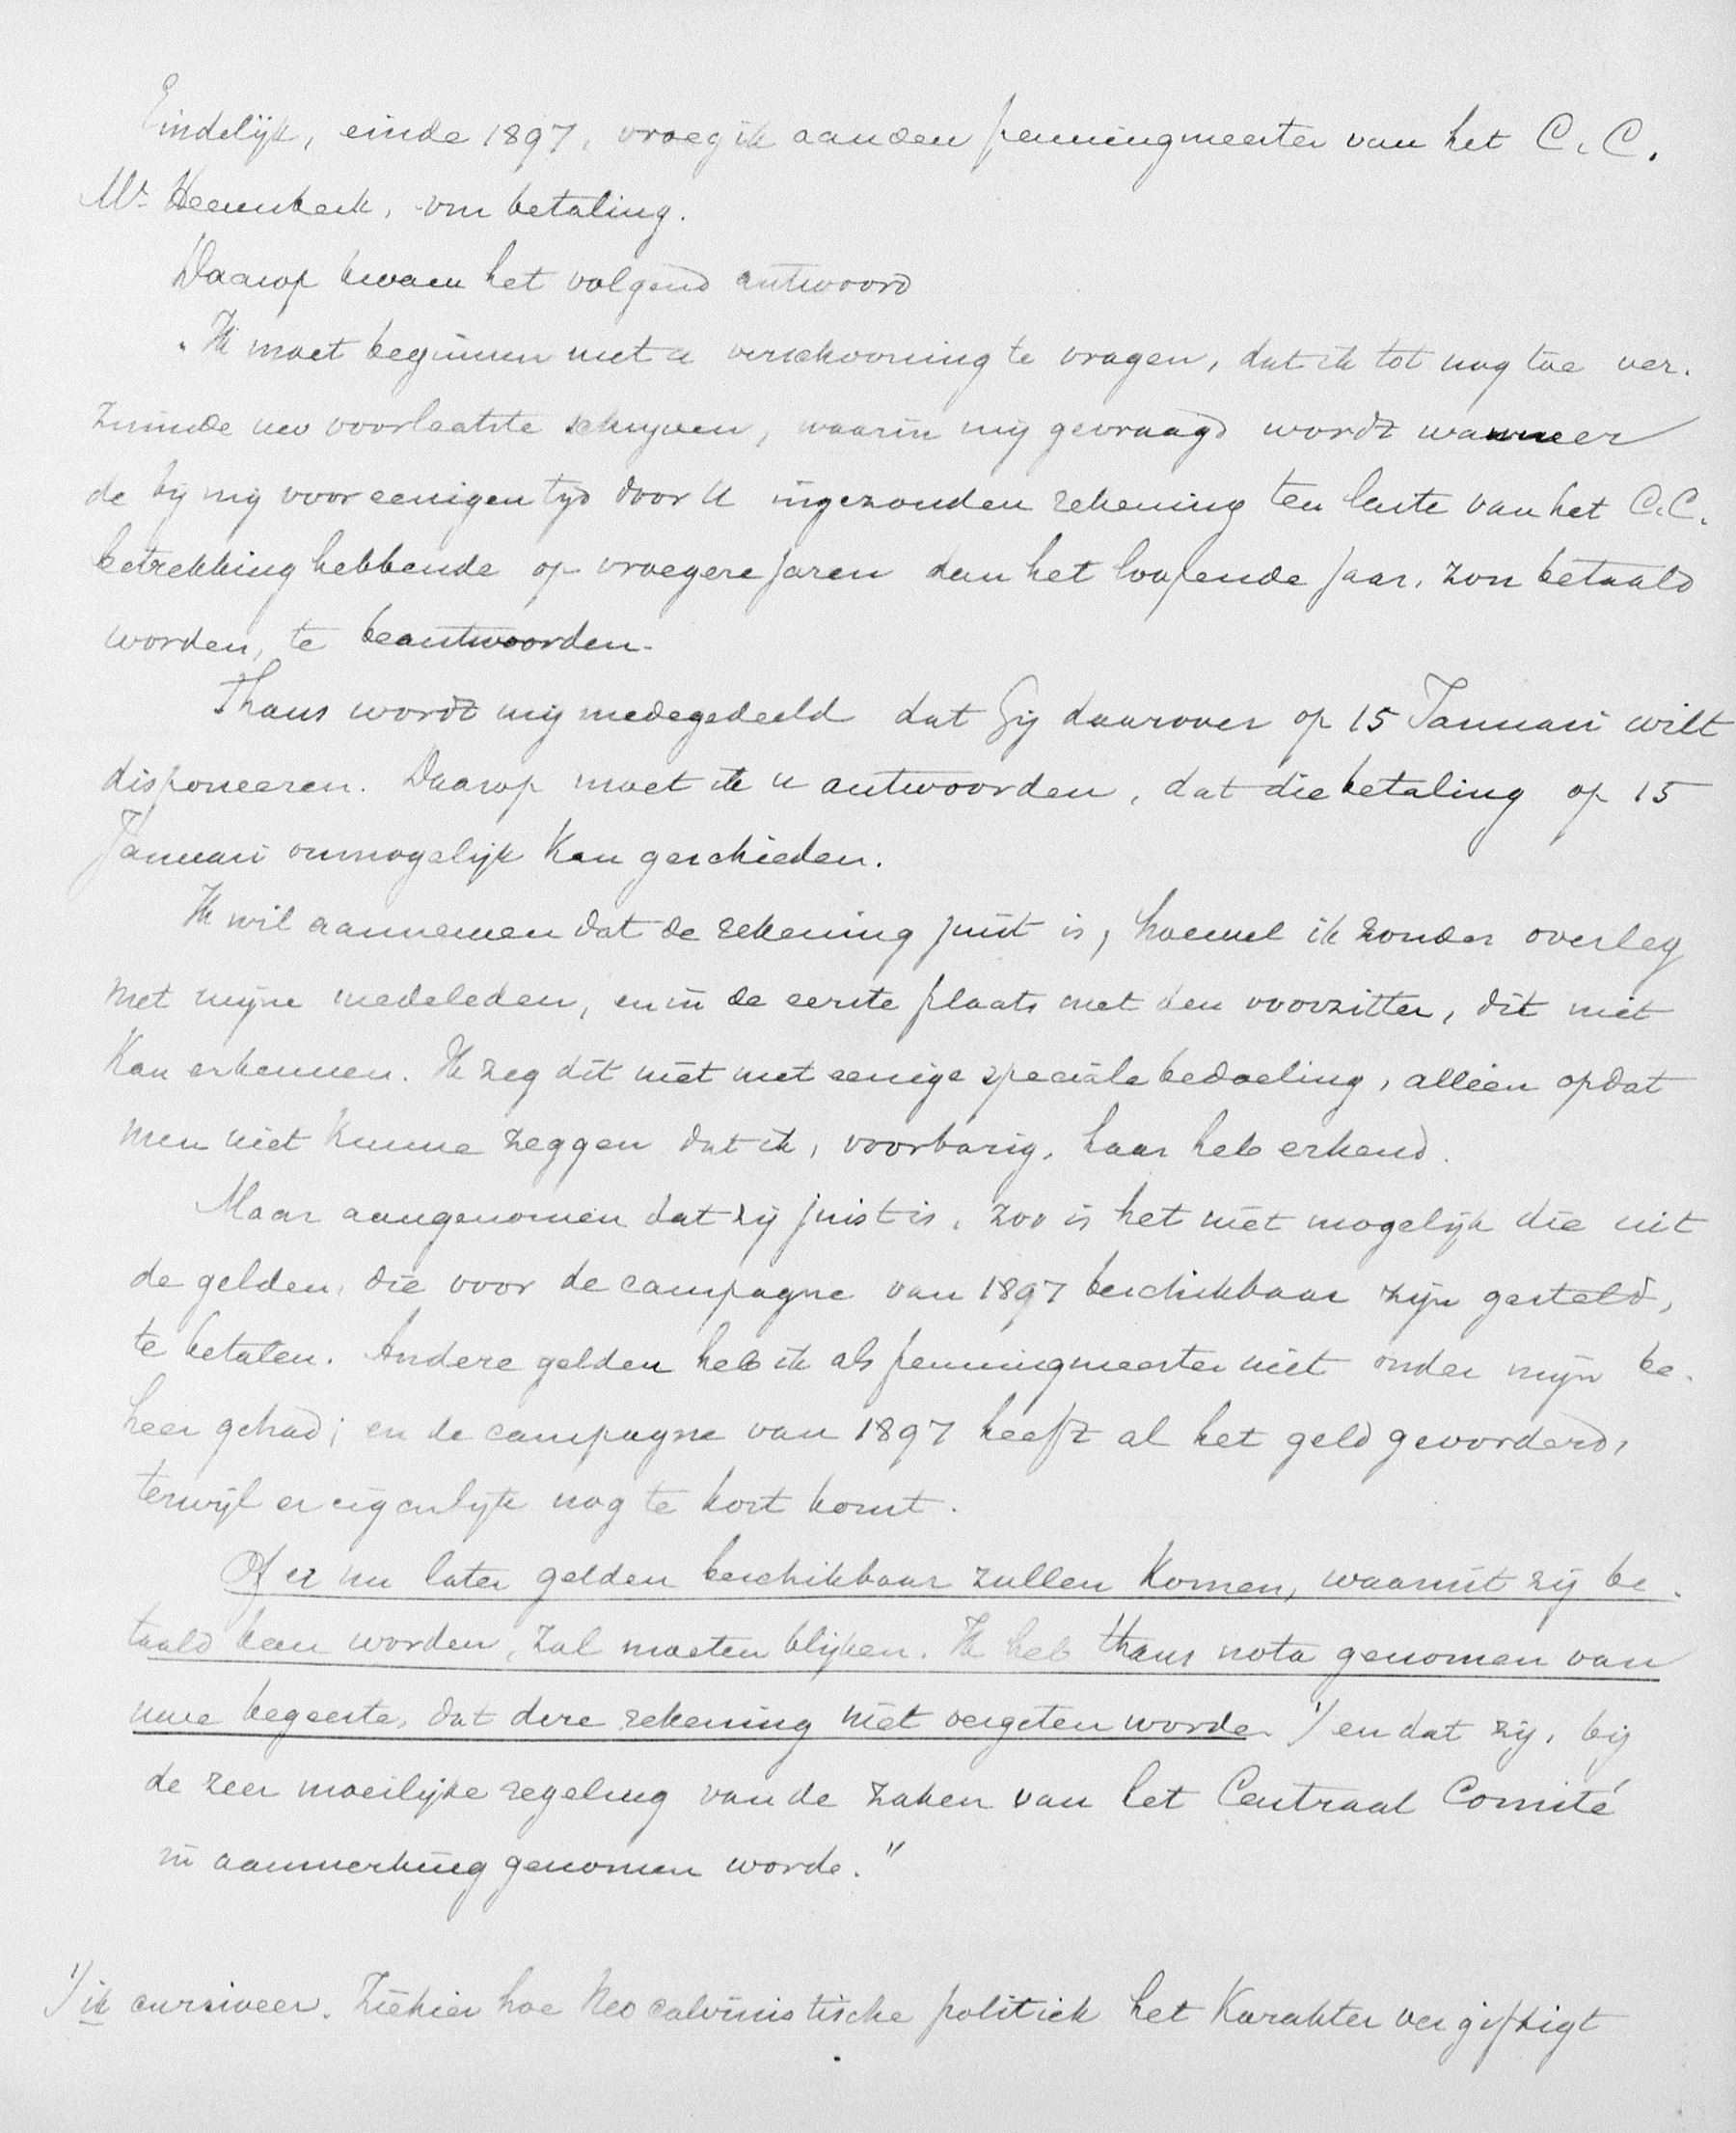 Eindelijk, einde 1897, vroeg ik aan den penningmeester van het C. C.
Mr Heemskerk, om betaling.
Daarop kwam het volgend antwoord
"Ik moet beginnen met u verschooning te vragen, dat ik tot nog toe ver-
zuimde uw voorlaatste schrijven, waarin mij gevraagd wordt wanneer
de bij mij voor eenigen tijd door U ingezonden rekening ten laste van het C.C.
betrekking hebbende op vroegere jaren dan het loopende jaar, zou betaald
worden, te beantwoorden.
Thans wordt mij medegedeeld dat Gij daarover op 15 Januari wilt
disponeeren. Daarop moet ik u antwoorden, dat die betaling op 15
Januari onmogelijk kan geschieden.
Ik wil aannemen dat de rekening juist is, hoewel ik zonder overleg
met mijne medeleden, en in de eerste plaats met den voorzitter, dit niet
kan erkennen. Ik zeg dit niet met eenige speciale bedoeling, alleen opdat
men niet kunne zeggen dat ik, voorbarig, haar heb erkend.
Maar aangenomen dat zij juist is, zoo is het niet mogelijk die uit
de gelden, die voor de campagne van 1897 beschikbaar zijn gesteld,
te betalen. Andere gelden heb ik als penningmeester niet onder mijn be-
heer gehad; en de campagne van 1897 heeft al het geld gevorderd,
terwijl er eigenlijk nog te kort komt.
Of er nu later gelden beschikbaar zullen komen, waaruit zij be-
taald kan worden, zal moeten blijken. Ik heb thans nota genomen van
uwe begeerte, dat deze rekening niet vergeten worde 1) en dat zij, bij
de zeer moeilijke regeling van de zaken van het Centraal Comité
in aanmerking genomen worde."
1) ik cursiveer. Ziehier hoe Neo calvinistische politiek het karakter vergiftigt